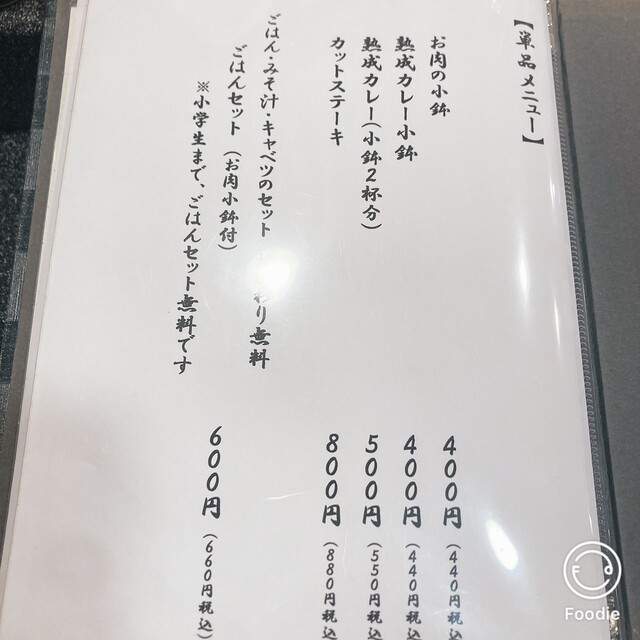 【単品メニュー】
お肉の小鉢 400円（440円税込
熟成カレー小鉢 400円（440円税込
熟成カレー（小鉢２杯分） 500円（550円税込
カットステーキ 800円（880円税込
ごはん・みそ汁・キャベツのセット わり無料
ごはんセット（お肉小鉢付） 600円（660円税込）
※小学生まで、ごはんセット無料です
Foodie